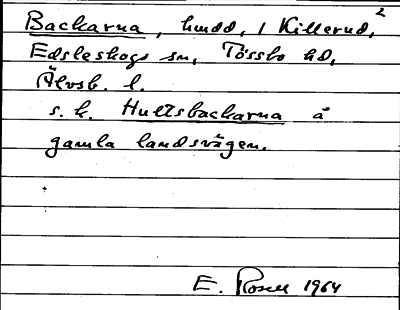 Backarna, hmdd, 1 Killerud,²
Edsleskogs sn, Tössbo hd,
Älvsb. l.
s.k. Hultsbackarna å
gamla landsvägen.
E. Rosell 1964